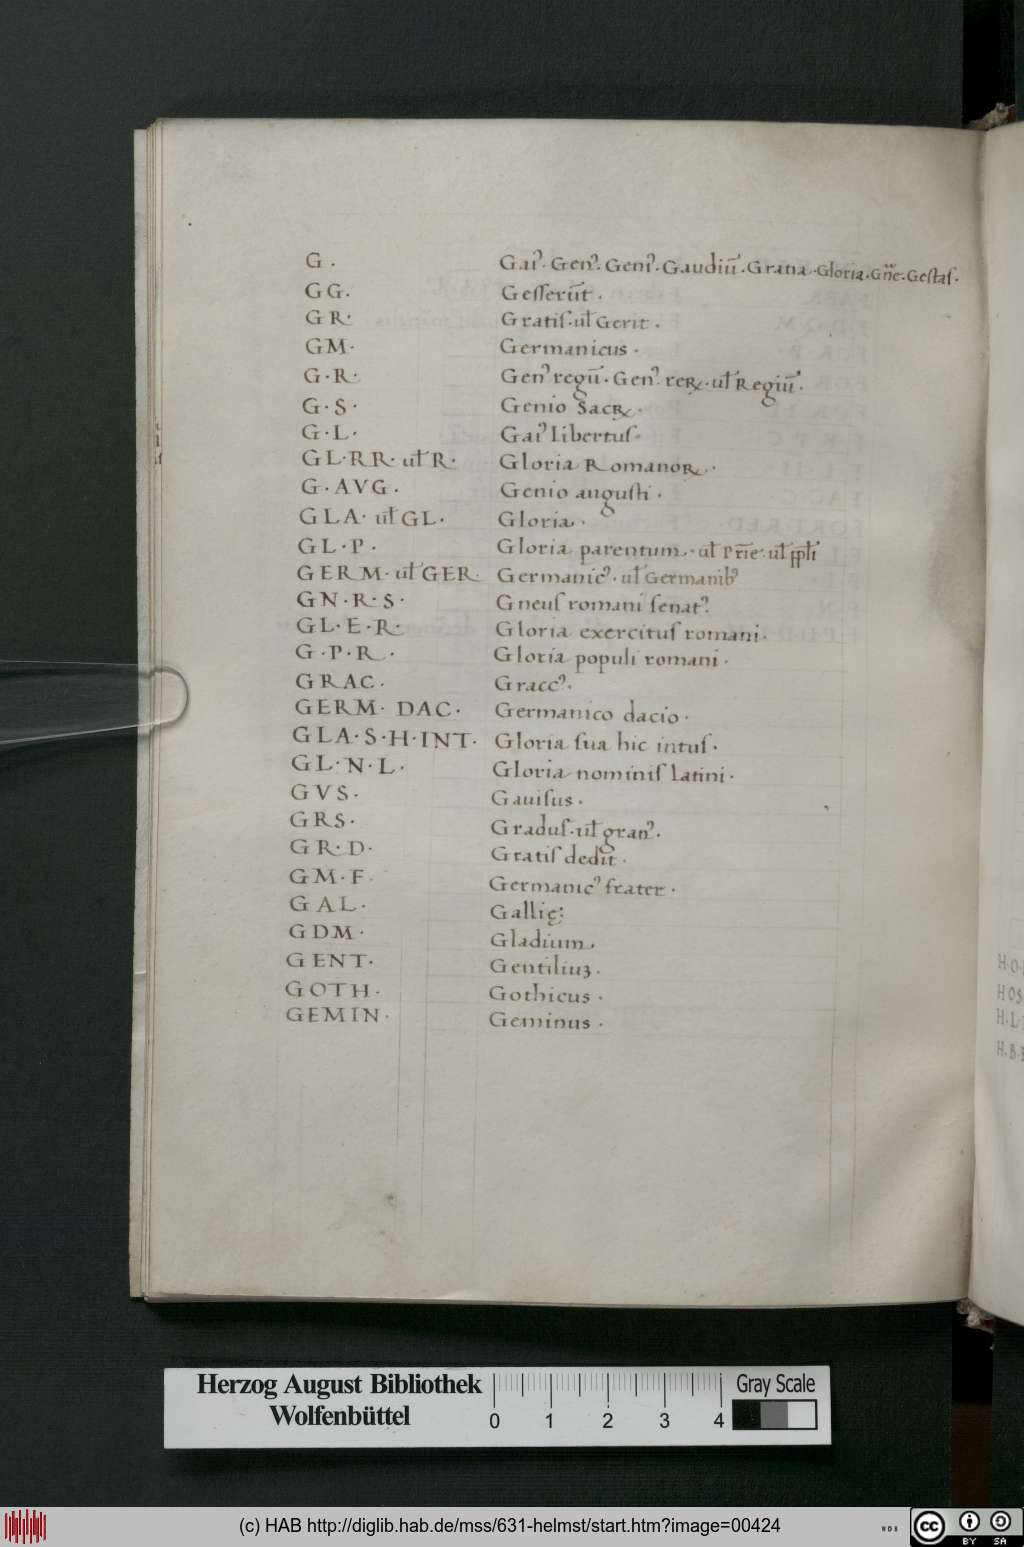 G. Gaiꝰ. Genꝰ. Geniꝰ. Gaudiū. Gratia. Gloria. Gestas.
GG. Gesserūt.
GR. Gratis. ul̄ Gerit.
GM. Germanicus.
G.R. Genꝰ regū. Genꝰ. reꝝ. ul̄ Regiū.
G.S. Genio Sacꝝ.
G.L. Gaiꝰ libertus.
GL.RR. ul̄ R. Gloria Romanoꝝ.
G.AVG. Genio augusti.
GLA. ul̄ GL. Gloria.
GL.P. Gloria parentum. ul̄ pr̄ie. ul̄
GERM. ul̄ GER. Germanicꝰ. ul̄ Germanibꝰ
GN.R.S. Gneus romani senatꝰ.
GL.E.R. Gloria exercitus romani.
G.P.R. Gloria populi romani.
GRAC. Graccꝰ.
GERM. DAC. Germanico dacio.
GLA.S.H.INT. Gloria sua hic intus.
GL.N.L. Gloria nominis latini.
GVS. Gauisus.
GRS. Gradus. ul̄ granꝰ.
GR.D. Gratis dedit.
GM.F. Germanicꝰ frater.
GAL. Gallię:
GDM. Gladium.
GENT. Gentiliuꝫ.
GOTH. Gothicus.
GEMIN. Geminus.
H.O.
HOS
H.L.
H.B.
Herzog August Bibliothek
Wolfenbüttel
0 1 2 3 4
Gray Scale
(c) HAB http://diglib.hab.de/mss/631-helmst/start.htm?image=00424
WDB
cc BY SA